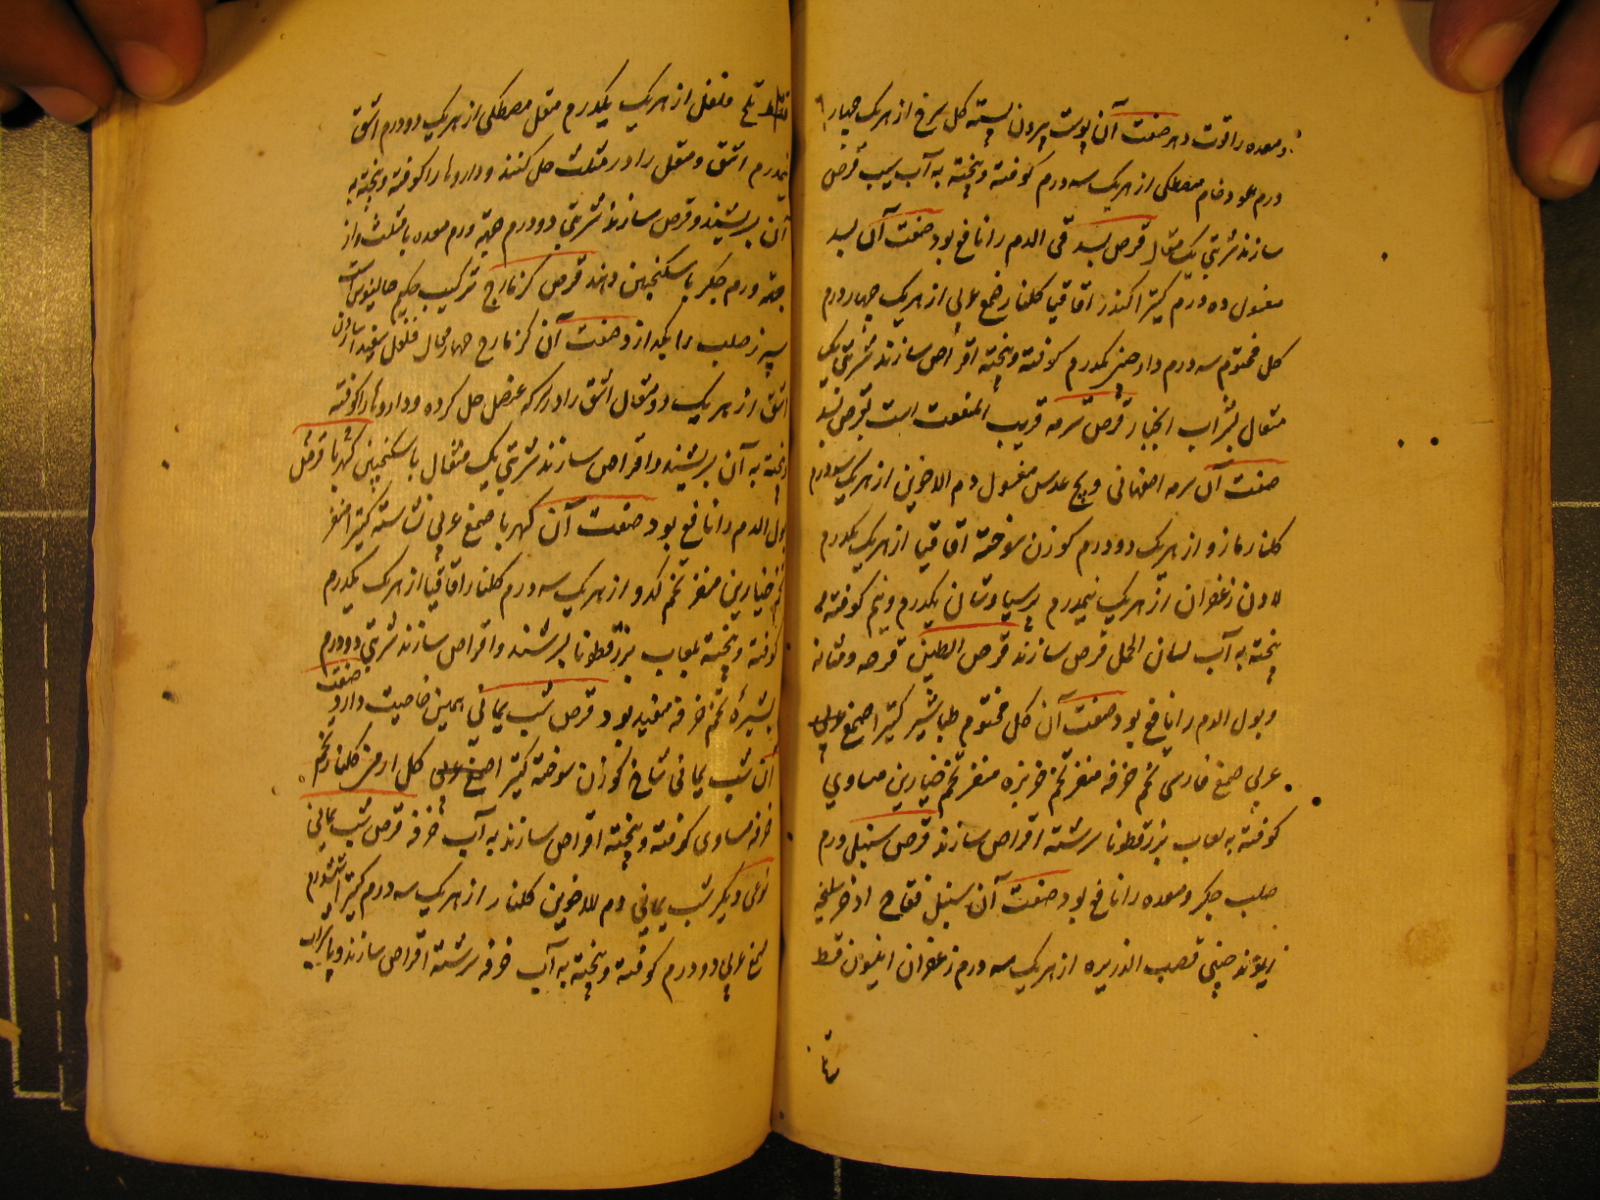 و معده را قوت دهد صفت آن پوست بیرون پسته کل سرخ از هریک چهار
درم عود خام مصطکی از هریک سه درم کوفته و بیخته به آب سیب قرص
سازند شربتی یک مثقال قرص بسد قی الدم را نافع بود صفت آن بسد
مغسول ده درم کتیرا کندر اقاقیا کلنار صمغ عربی از هریک چهار درم
کل مختوم سه درم دارچینی یکدرم کوفته و بیخته اقراص سازند شربتی یک
مثقال بشراب انجبار قرص سرمه قریب المنفعت است بقرص بسد
صفت آن سرمه اصفهانی و بج عدس مغسول دم الاخوین از هریک سه درم
کلنار مازو از هریک دو درم کوزن سوخته اقاقیا از هریک یکدرم
لادن زعفران از هریک نیمدرم پرسیاوشان یکدرم و نیم کوفته
بیخته به آب لسان الحمل قرص سازند قرص الطین قرحه و مثانه
و بول الدم را نافع بود صفت آن کل مختوم طباشیر کتیرا صمغ عربی
عربی صمغ فارسی تخم خرفه مغز تخم خربزه مغز تخم خیارین مساوی
کوفته به لعاب بزرقطونا سرشته اقراص سازند قرص سنبل ورم
صلب جکر و معده را نافع بود صفت آن سنبل فقاح اذخر سلیخه
ریوند چینی قصب الذریره از هریک سه درم زعفران انیسون قسط
تلخ فلفل از هریک یکدرم مقل مصطکی از هریک دو درم اشق
نیمدرم اشق و مقل را در مثلث حل کنند و داروها را کوفته و بیخته به
آن بسرشند و قرص سازند شربتی دو درم جهته ورم معده با مثلث و از
جهته ورم جکر با سکنجبین دهند قرص کزمازج ترکیب حکیم جالینوس است
سپرز صلب را بکدازد صفت آن کزمازج چهار مثقال فلفل سفید اسارون
اشق از هریک دو مثقال اشق را در سرکه عنصل حل کرده و داروها را کوفته
و بیخته به آن بسرشند و اقراص سازند شربتی یک مثقال با سکنجبین قرص کهربا
بول الدم را نافع بود صفت آن کهربا صمغ عربی نشاسته کتیرا مغز
تخم خیارین مغز تخم کدو از هریک سه درم کلنار اقاقیا از هریک یکدرم
کوفته و بیخته بلعاب بزرقطونا بسرشند و اقراص سازند شربتی دو درم
بشیره تخم خرفه مفید بود قرص شب یمانی همین خاصیت دارد صفت
آن شب یمانی شاخ کوزن سوخته کتیرا صمغ عربی کل ارمنی کلنار تخم
خرفه مساوی کوفته و بیخته اقراص سازند به آب خرفه قرص شب یمانی
نوعی دیکر شب یمانی دم الاخوین کلنار از هریک سه درم کتیرا ششدرم
صمغ عربی دو درم کوفته و بیخته به آب خرفه سرشته اقراص سازند و با شراب